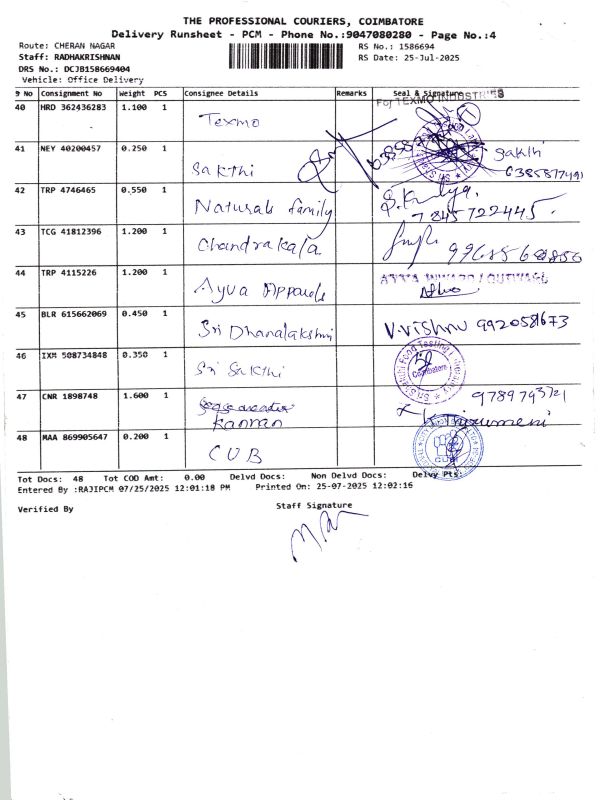 THE PROFESSIONAL COURIERS, COIMBATORE
Delivery Runsheet - PCM - Phone No.:9047080280 - Page No.:4
Route: CHERAN NAGAR
RS No.: 1586694
Staff: RADHAKRISHNAN
RS Date: 25-Jul-2025
DRS No.: DCJB158669404
Vehicle: Office Delivery
S No Consignment No Weight PCS Consignee Details Remarks Seal & Signature
For TEXMO INDUSTRIES
40 HRD 362436283 1.100 1 Texmo
41 NEY 40200457 0.250 1 Sakthi Sakthi
42 TRP 4746465 0.550 1 Naturals family
7845722445
43 TCG 41812396 1.200 1 Chandrakala
44 TRP 4115226 1.200 1 Ayva Apparels
45 BLR 615662069 0.450 1 Sri Dhanalakshmi V.Vishnu 9920581673
46 IXM 508734848 0.350 1 Sri Sakthi
Sri Sakthi Food Testing Laboratory
Coimbatore
47 CNR 1898748 1.600 1 Kannan 9789793721
48 MAA 869905647 0.200 1 CUB
CUB
Tot Docs: 48 Tot COD Amt: 0.00 Delvd Docs: Non Delvd Docs: Delvy Pts:
Entered By :RAJIPCM 07/25/2025 12:01:18 PM Printed On: 25-07-2025 12:02:16
Verified By
Staff Signature